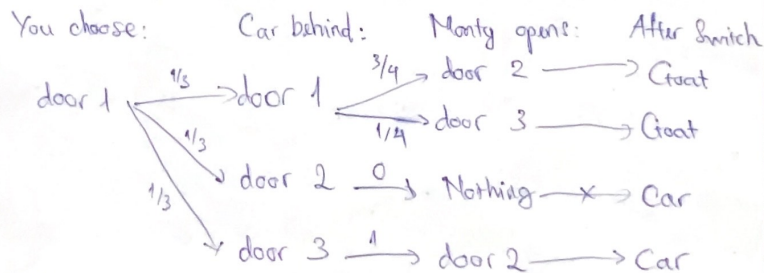 You choose: Car behind: Monty opens: After Switch
door 1 1/3 door 1 3/4 door 2 Goat
1/4 door 3 Goat
1/3 door 2 0 Nothing x Car
1/3 door 3 1 door 2 Car